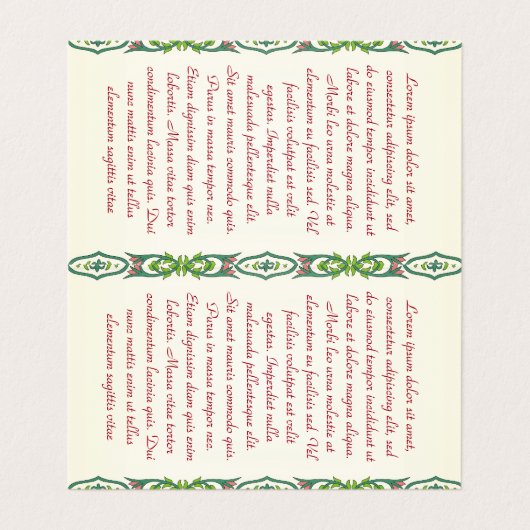 Lorem ipsum dolor sit amet,
consectetur adipiscing elit, sed
do eiusmod tempor incididunt ut
labore et dolore magna aliqua.
Morbi leo urna molestie at
elementum eu facilisis sed. Vel
facilisis volutpat est velit
egestas. Imperdiet nulla
malesuada pellentesque elit.
Sit amet mauris commodo quis.
Purus in massa tempor nec.
Etiam dignissim diam quis enim
lobortis. Massa vitae tortor
condimentum lacinia quis. Dui
nunc mattis enim ut tellus
elementum sagittis vitae
Lorem ipsum dolor sit amet,
consectetur adipiscing elit, sed
do eiusmod tempor incididunt ut
labore et dolore magna aliqua.
Morbi leo urna molestie at
elementum eu facilisis sed. Vel
facilisis volutpat est velit
egestas. Imperdiet nulla
malesuada pellentesque elit.
Sit amet mauris commodo quis.
Purus in massa tempor nec.
Etiam dignissim diam quis enim
lobortis. Massa vitae tortor
condimentum lacinia quis. Dui
nunc mattis enim ut tellus
elementum sagittis vitae